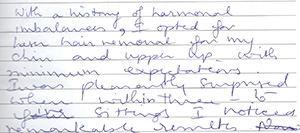 With a history of harmonal
imbalances, I opted for
laser hair removal for my
chin and upper lip with
minimum expectations
I was pleasantly surprised
when within three - to
sittings I noticed
remarkable results